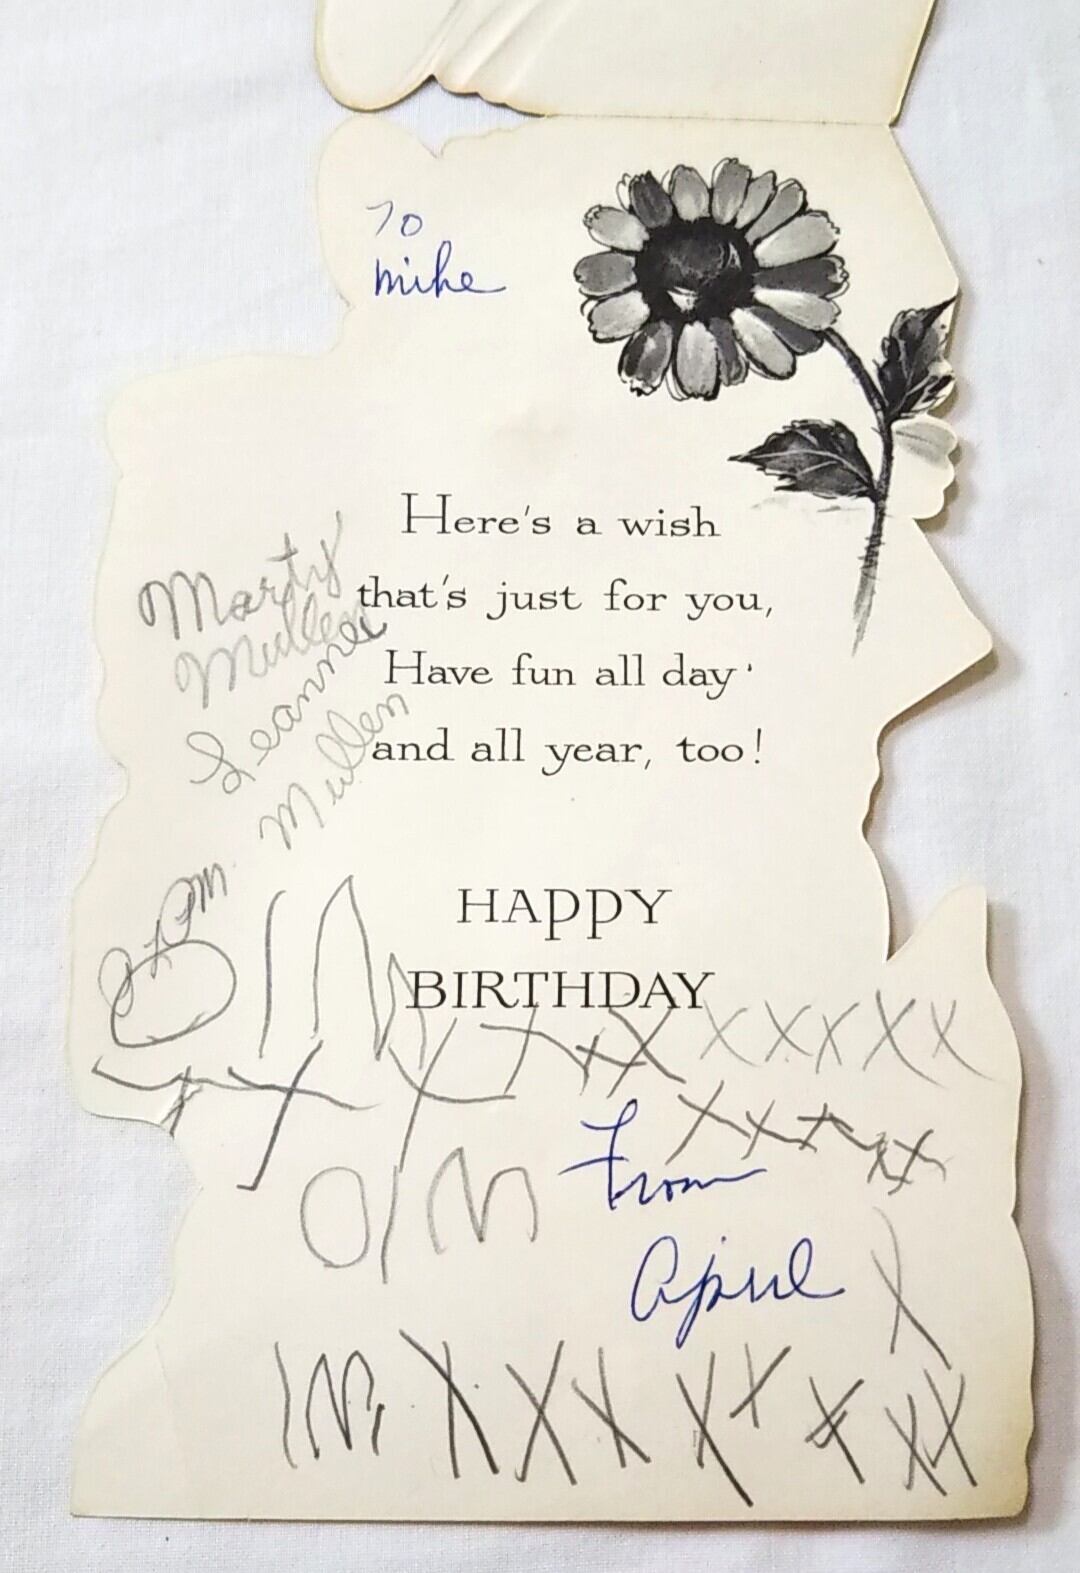 To
Mike
Here's a wish
that's just for you,
Have fun all day
and all year, too!
Marty
Mullen
Leanne
Mullen
HAPPY
BIRTHDAY
X X X X X X X X X X X
X X X X X
From
April
X
X X X X X X X X